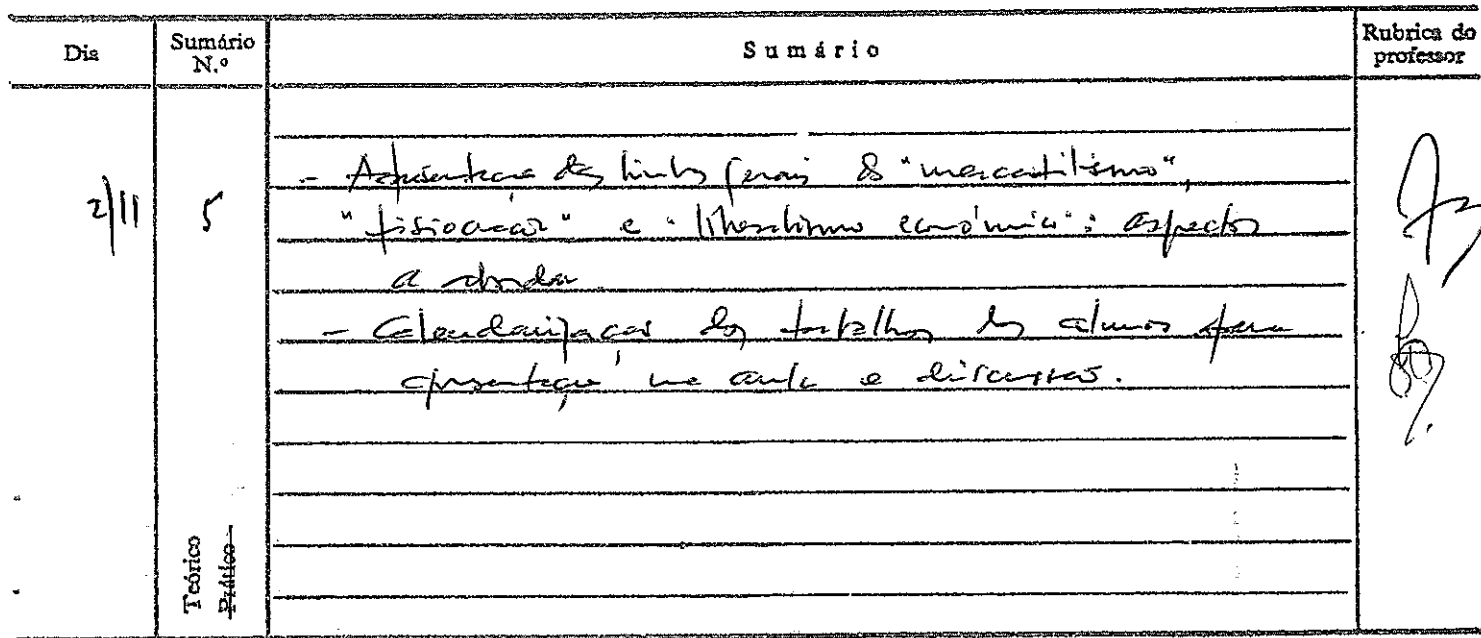 Dia
Sumário N.º
Sumário
Rubrica do professor
2/11
5
- Apresentação das linhas gerais do "mercantilismo",
"fisiocracia" e "liberalismo económico": aspectos
a abordar.
- Calendarização dos trabalhos dos alunos para
apresentação na aula e discussão.
Teórico
Prático